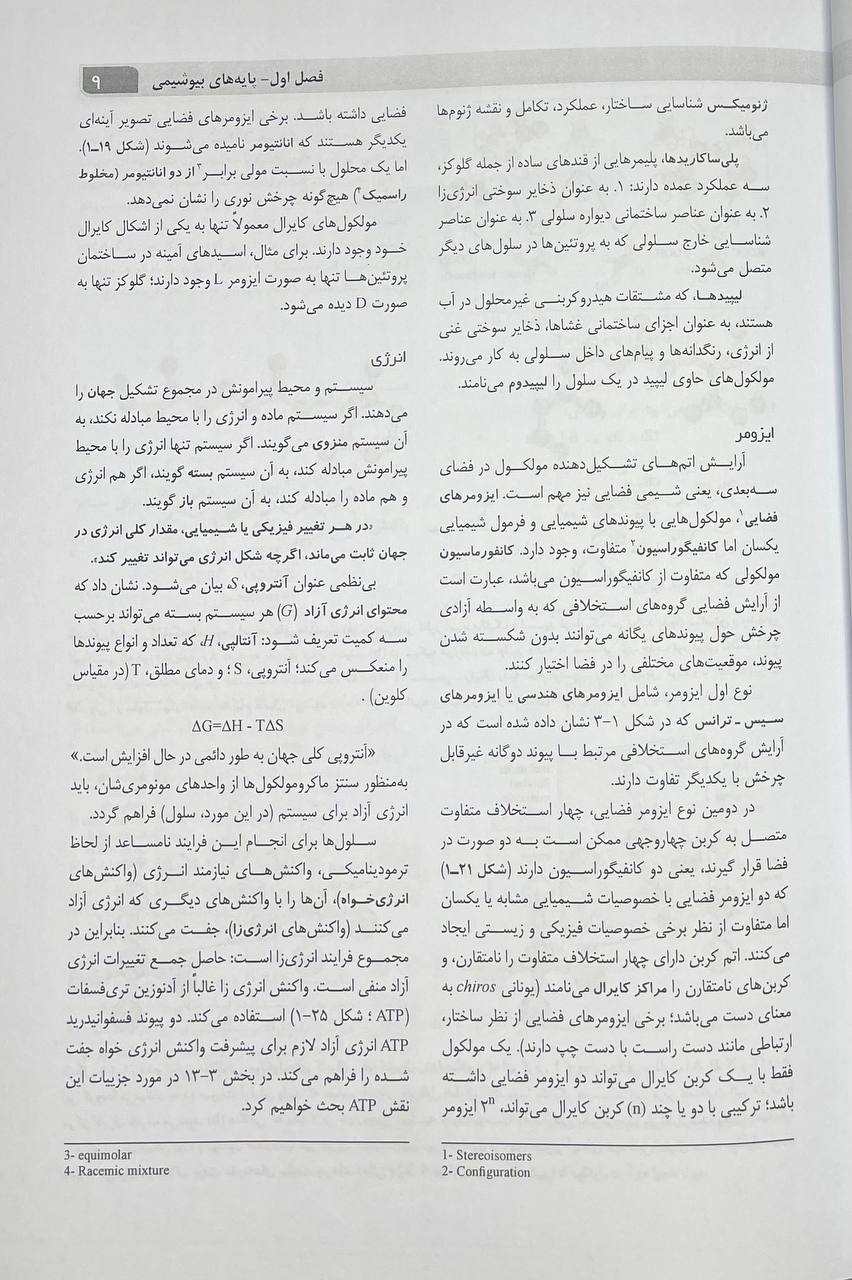 فصل اول- پایه‌های بیوشیمی
۹
ژنومیکس شناسایی ساختار، عملکرد، تکامل و نقشه ژنوم‌ها
می‌باشد.
پلی‌ساکاریدها، پلیمرهایی از قندهای ساده از جمله گلوکز،
سه عملکرد عمده دارند: ۱. به عنوان ذخایر سوختی انرژی‌زا
۲. به عنوان عناصر ساختمانی دیواره سلولی ۳. به عنوان عناصر
شناسایی خارج سلولی که به پروتئین‌ها در سلول‌های دیگر
متصل می‌شود.
لیپیدها، که مشتقات هیدروکربنی غیرمحلول در آب
هستند، به عنوان اجزای ساختمانی غشاها، ذخایر سوختی غنی
از انرژی، رنگدانه‌ها و پیام‌های داخل سلولی به کار می‌روند.
مولکول‌های حاوی لیپید در یک سلول را لیپیدوم می‌نامند.
ایزومر
آرایش اتم‌های تشکیل‌دهنده مولکول در فضای
سه‌بعدی، یعنی شیمی فضایی نیز مهم است. ایزومرهای
فضایی۱، مولکول‌هایی با پیوندهای شیمیایی و فرمول شیمیایی
یکسان اما کانفیگوراسیون۲ متفاوت، وجود دارد. کانفورماسیون
مولکولی که متفاوت از کانفیگوراسیون می‌باشد، عبارت است
از آرایش فضایی گروه‌های استخلافی که به واسطه آزادی
چرخش حول پیوندهای یگانه می‌توانند بدون شکسته شدن
پیوند، موقعیت‌های مختلفی را در فضا اختیار کنند.
نوع اول ایزومر، شامل ایزومرهای هندسی یا ایزومرهای
سیس - ترانس که در شکل ۱-۳ نشان داده شده است که در
آرایش گروه‌های استخلافی مرتبط با پیوند دوگانه غیرقابل
چرخش با یکدیگر تفاوت دارند.
در دومین نوع ایزومر فضایی، چهار استخلاف متفاوت
متصل به کربن چهاروجهی ممکن است به دو صورت در
فضا قرار گیرند، یعنی دو کانفیگوراسیون دارند (شکل ۲۱-۱)
که دو ایزومر فضایی با خصوصیات شیمیایی مشابه یا یکسان
اما متفاوت از نظر برخی خصوصیات فیزیکی و زیستی ایجاد
می‌کنند. اتم کربن دارای چهار استخلاف متفاوت را نامتقارن، و
کربن‌های نامتقارن را مراکز کایرال می‌نامند (یونانی chiros به
معنای دست می‌باشد؛ برخی ایزومرهای فضایی از نظر ساختار،
ارتباطی مانند دست راست با دست چپ دارند). یک مولکول
فقط با یک کربن کایرال می‌تواند دو ایزومر فضایی داشته
باشد؛ ترکیبی با دو یا چند (n) کربن کایرال می‌تواند، ۲ⁿ ایزومر
1- Stereoisomers
2- Configuration
فضایی داشته باشد. برخی ایزومرهای فضایی تصویر آینه‌ای
یکدیگر هستند که انانتیومر نامیده می‌شوند (شکل ۱۹-۱).
اما یک محلول با نسبت مولی برابر۳ از دو انانتیومر (مخلوط
راسمیک۴) هیچ‌گونه چرخش نوری را نشان نمی‌دهد.
مولکول‌های کایرال معمولاً تنها به یکی از اشکال کایرال
خود وجود دارند. برای مثال، اسیدهای آمینه در ساختمان
پروتئین‌ها تنها به صورت ایزومر L وجود دارند؛ گلوکز تنها به
صورت D دیده می‌شود.
انرژی
سیستم و محیط پیرامونش در مجموع تشکیل جهان را
می‌دهند. اگر سیستم ماده و انرژی را با محیط مبادله نکند، به
آن سیستم منزوی می‌گویند. اگر سیستم تنها انرژی را با محیط
پیرامونش مبادله کند، به آن سیستم بسته گویند، اگر هم انرژی
و هم ماده را مبادله کند، به آن سیستم باز گویند.
«در هر تغییر فیزیکی یا شیمیایی، مقدار کلی انرژی در
جهان ثابت می‌ماند، اگرچه شکل انرژی می‌تواند تغییر کند».
بی‌نظمی عنوان آنتروپی، S، بیان می‌شود. نشان داد که
محتوای انرژی آزاد (G) هر سیستم بسته می‌تواند برحسب
سه کمیت تعریف شود: آنتالپی، H، که تعداد و انواع پیوندها
را منعکس می‌کند؛ آنتروپی، S ؛ و دمای مطلق، T (در مقیاس
کلوین) .
ΔG=ΔH - TΔS
«آنتروپی کلی جهان به طور دائمی در حال افزایش است.»
به‌منظور سنتز ماکرومولکول‌ها از واحدهای مونومری‌شان، باید
انرژی آزاد برای سیستم (در این مورد، سلول) فراهم گردد.
سلول‌ها برای انجام این فرایند نامساعد از لحاظ
ترمودینامیکی، واکنش‌های نیازمند انرژی (واکنش‌های
انرژی‌خواه)، آن‌ها را با واکنش‌های دیگری که انرژی آزاد
می‌کنند (واکنش‌های انرژی‌زا)، جفت می‌کنند. بنابراین در
مجموع فرایند انرژی‌زا است: حاصل جمع تغییرات انرژی
آزاد منفی است. واکنش انرژی زا غالباً از آدنوزین تری‌فسفات
(ATP ؛ شکل ۲۵-۱) استفاده می‌کند. دو پیوند فسفوانیدرید
ATP انرژی آزاد لازم برای پیشرفت واکنش انرژی خواه جفت
شده را فراهم می‌کند. در بخش ۳-۱۳ در مورد جزییات این
نقش ATP بحث خواهیم کرد.
3- equimolar
4- Racemic mixture